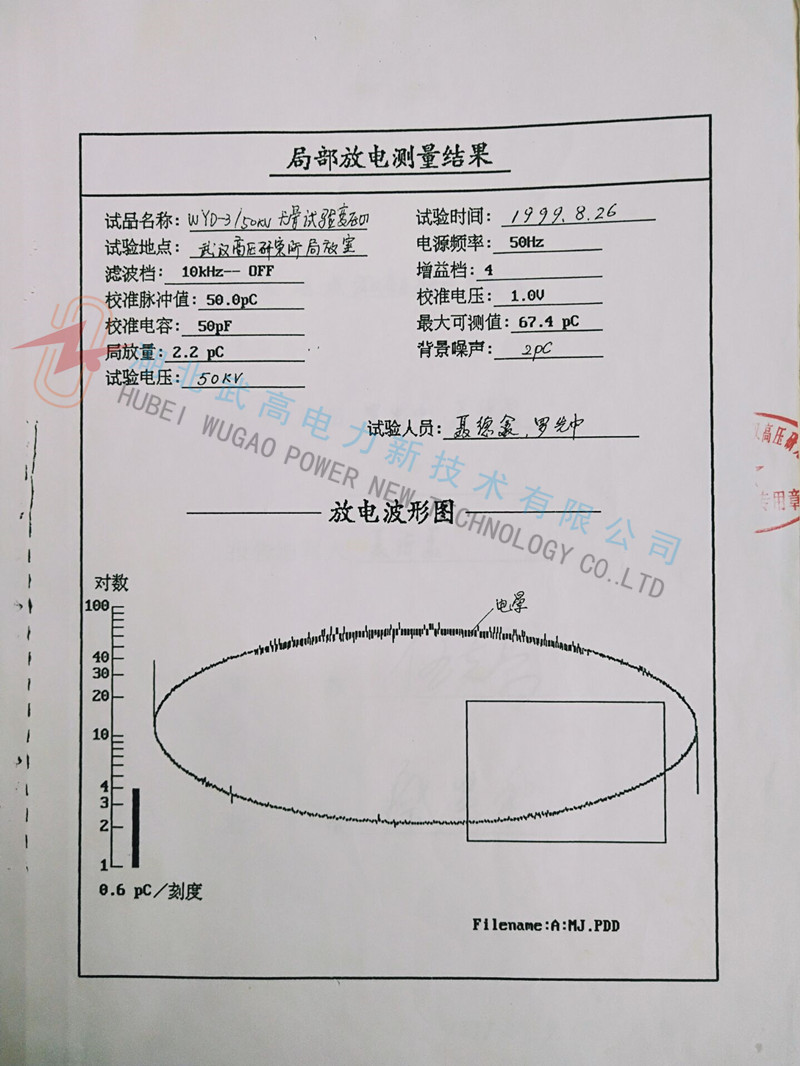 局部放电测量结果
试品名称: WYD-3/50KV 试验变压
试验时间: 1999.8.26
试验地点: 武汉高压研究所局放室
电源频率: 50Hz
滤波档: 10kHz-- OFF
增益档: 4
校准脉冲值: 50.0pC
校准电压: 1.0V
校准电容: 50pF
最大可测值: 67.4 pC
局放量: 2.2 pC
背景噪声: 2pC
试验电压: 50KV
试验人员: 聂德鑫,
湖北武高电力新技术有限公司
HUBEI WUGAO POWER NEW TECHNOLOGY CO.,LTD
高压研
专用章
放电波形图
对数
电晕
100
40
30
20
10
4
3
2
1
0.6 pC/刻度
Filename:A:MJ.PDD